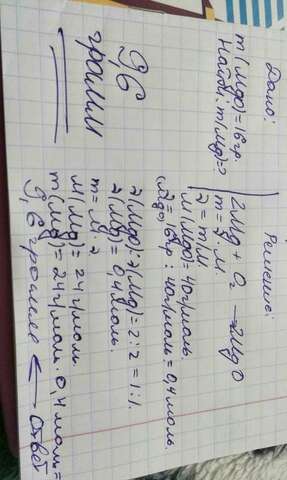 Дано:
m(MgO)=16гр.
Найти: m(Mg)=?
Решение:
2Mg + O₂ → 2MgO
m = ν · M.
ν = m/M
M(MgO)=40г/моль.
ν(MgO)= 16гр : 40г/моль = 0,4 моль.
ν(Mg):ν(Mg)=2:2=1:1.
ν(Mg)=0,4 моль.
m = M · ν
M(Mg)=24г/моль
m(Mg)=24г/моль · 0,4 моль =
9,6 грамм ← Ответ
9,6
грамм